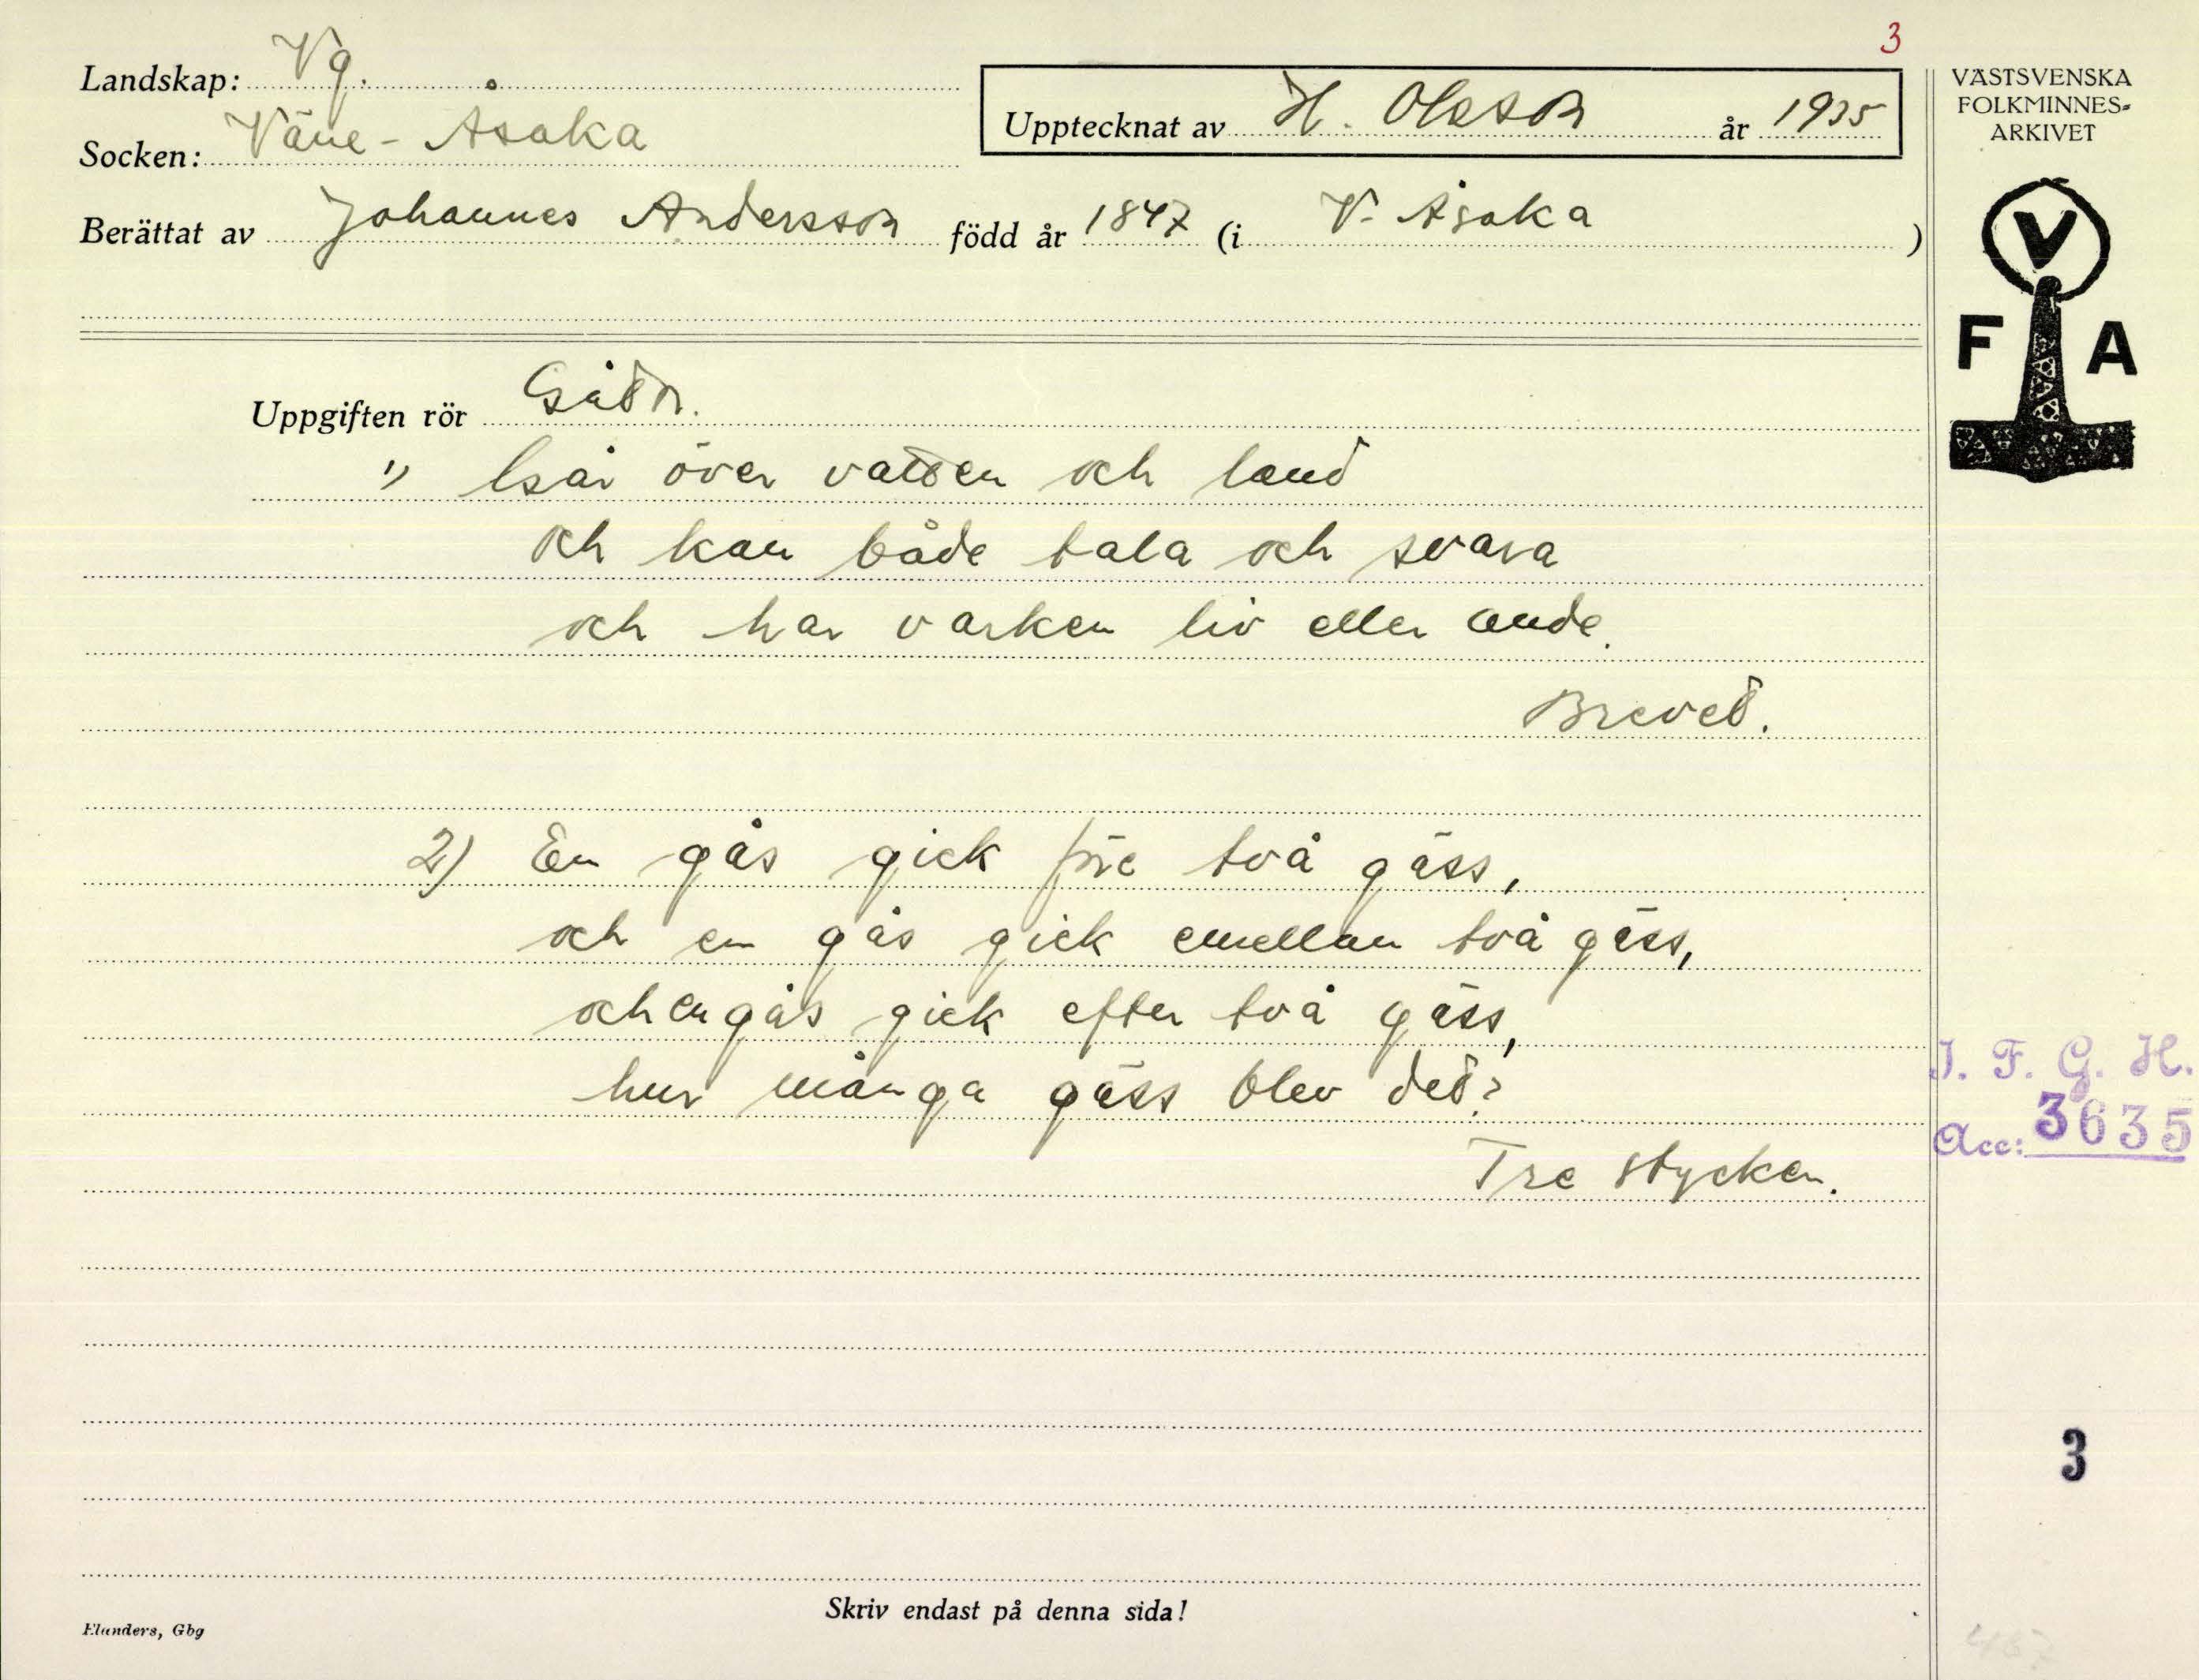 3
Landskap: Vg.
Socken: Väne-Åsaka
Upptecknat av H. Olsson år 1935
Berättat av Johannes Andersson född år 1847 (i V. Åsaka )
VÄSTSVENSKA
FOLKMINNES-
ARKIVET
V
F A
Uppgiften rör Gåtor.
1) Går över vatten och land
och kan både tala och svara
och har varken liv eller ande.
Brevet.
2) En gås gick före två gäss,
och en gås gick emellan två gäss,
och en gås gick efter två gäss,
hur många gäss blev det?
Tre stycken.
I. F. G. H.
Acc: 3635
3
Skriv endast på denna sida!
Elanders, Gbg
467